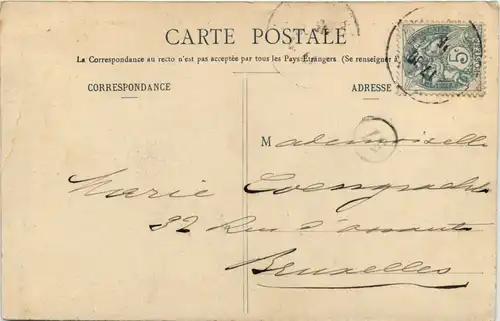 CARTE POSTALE
La Correspondance au recto n'est pas acceptée par tous les Pays Étrangers (Se renseigner à
CORRESPONDANCE
ADRESSE
Mademoiselle
Marie
32 Rue d'assaut
Bruxelles
5c